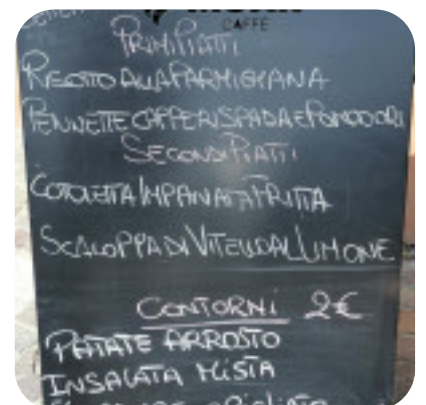 CAFFÈ
PRIMI PIATTI
RISOTTO ALLA PARMIGIANA
PENNETTE CAPPERI SPADA E POMODORI
SECONDI PIATTI
COTOLETTA IMPANATA FRITTA
SCALOPPA DI VITELLO AL LIMONE
CONTORNI 2€
PATATE ARROSTO
INSALATA MISTA